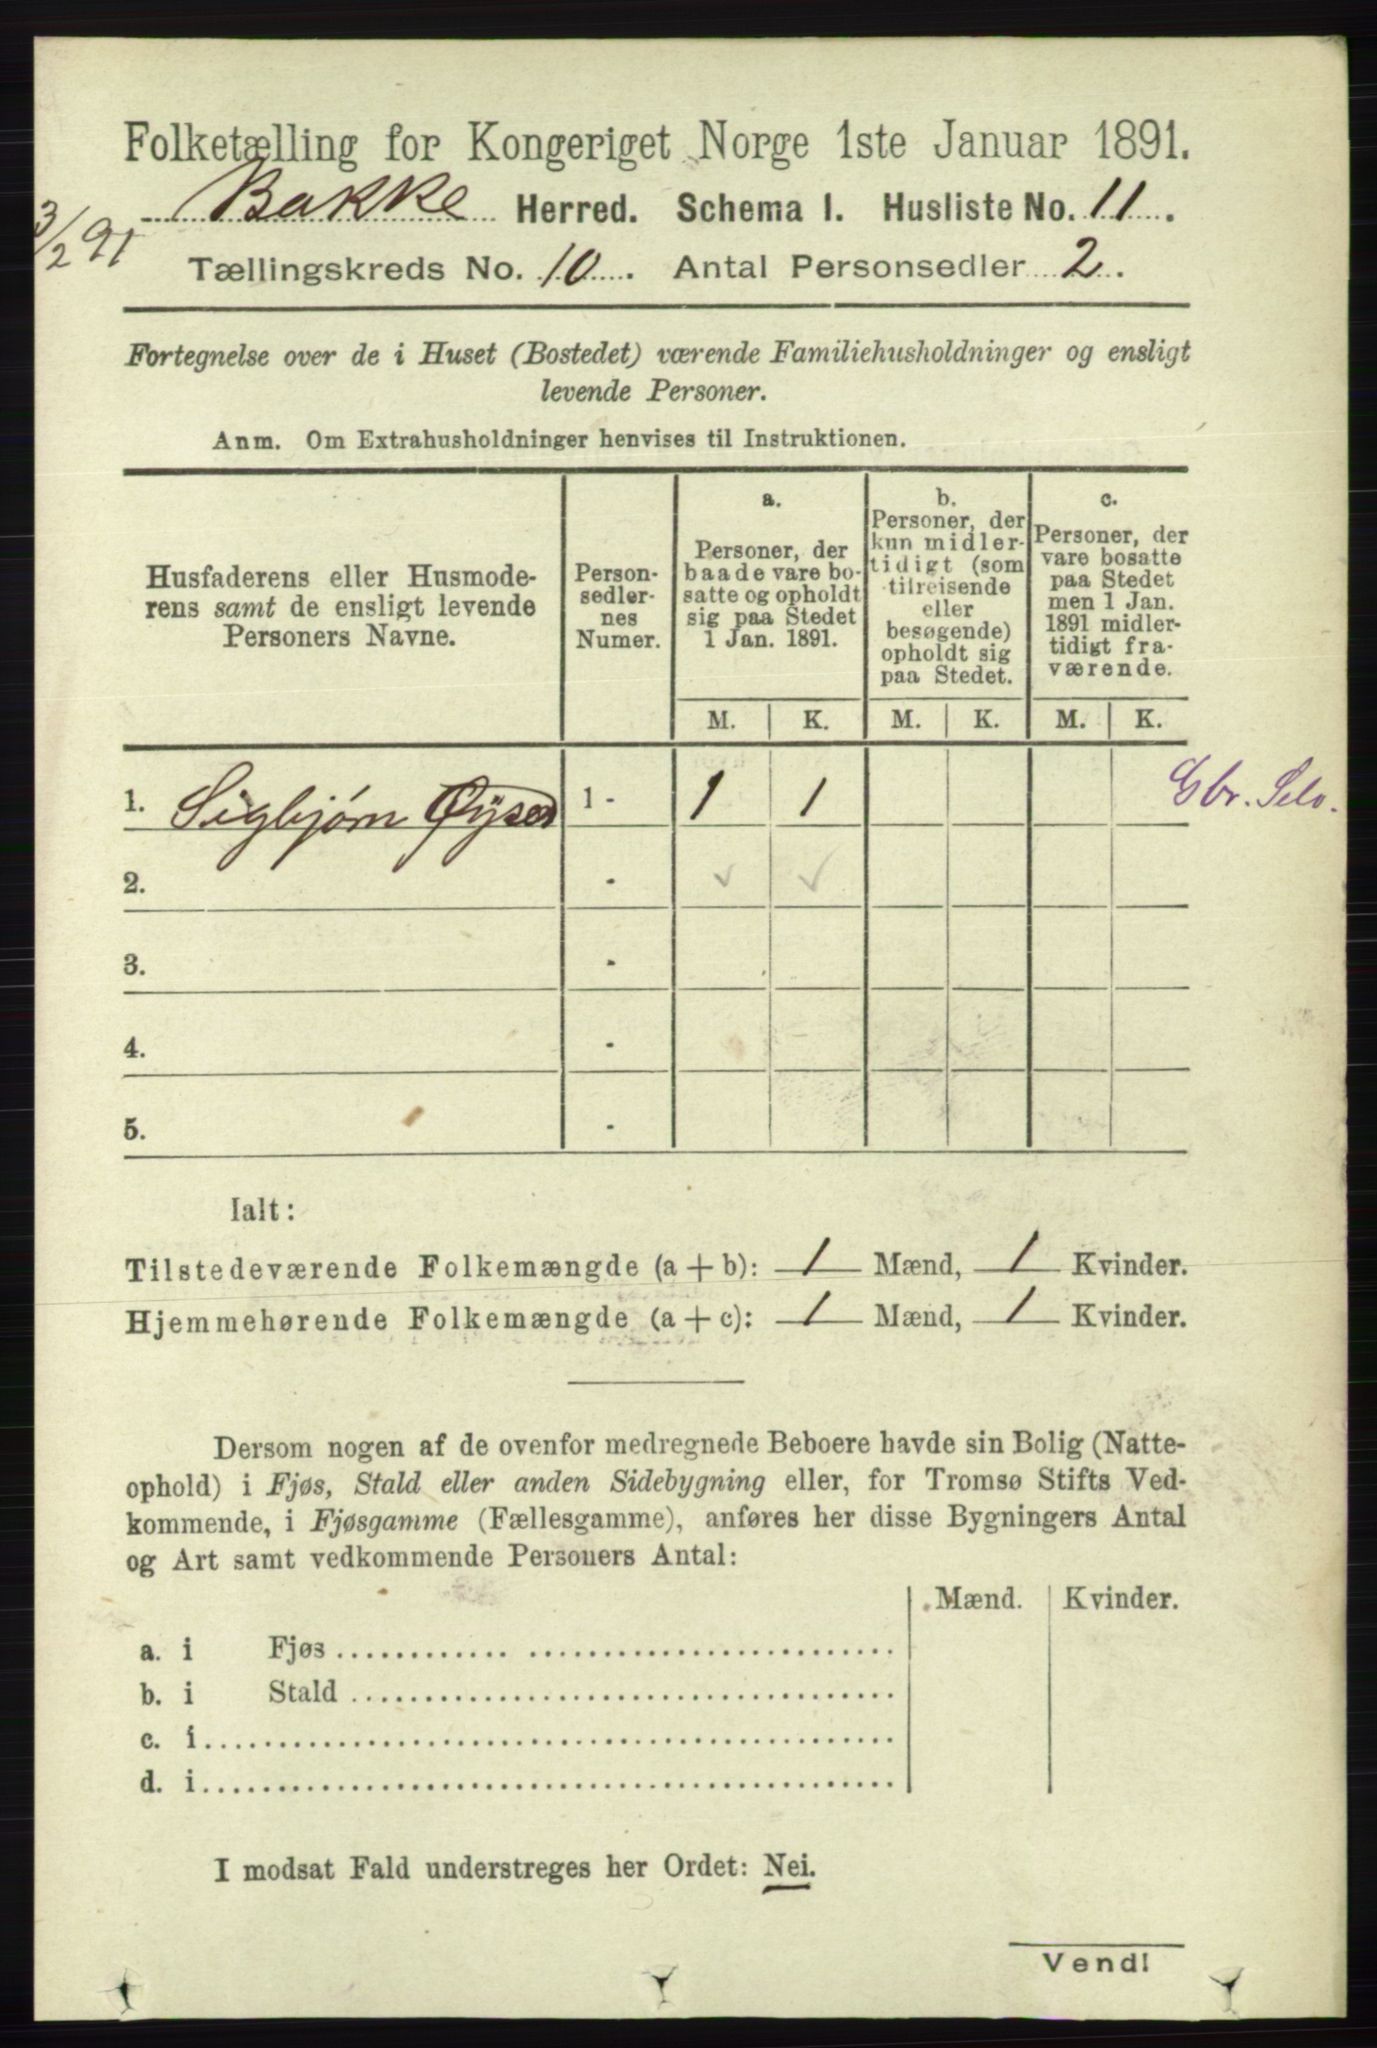 Folketælling for Kongeriget Norge 1ste Januar 1891.
Bakke Herred. Schema I. Husliste No. 11.
3/2 91
Tællingskreds No. 10. Antal Personsedler 2.
Fortegnelse over de i Huset (Bostedet) værende Familiehusholdninger og ensligt
levende Personer.
Anm. Om Extrahusholdninger henvises til Instruktionen.
Husfaderens eller Husmode-
rens samt de ensligt levende
Personers Navne.
Person-
sedler-
nes
Numer.
a.
Personer, der
baade vare bo-
satte og opholdt
sig paa Stedet
1 Jan. 1891.
b.
Personer, der
kun midler-
tidigt (som
tilreisende
eller
besøgende)
opholdt sig
paa Stedet.
c.
Personer, der
vare bosatte
paa Stedet
men 1 Jan.
1891 midler-
tidigt fra-
værende.
M. K. M. K. M. K.
1. Sigbjørn 1 - 1 1 Gbr. Selv.
2. -
3. -
4. -
5. -
Ialt:
Tilstedeværende Folkemængde (a + b): 1 Mænd, 1 Kvinder.
Hjemmehørende Folkemængde (a + c): 1 Mænd, 1 Kvinder.
Dersom nogen af de ovenfor medregnede Beboere havde sin Bolig (Natte-
ophold) i Fjøs, Stald eller anden Sidebygning eller, for Tromsø Stifts Ved-
kommende, i Fjøsgamme (Fællesgamme), anføres her disse Bygningers Antal
og Art samt vedkommende Personers Antal:
Mænd. Kvinder.
a. i Fjøs
b. i Stald
c. i
d. i
I modsat Fald understreges her Ordet: Nei.
Vend!